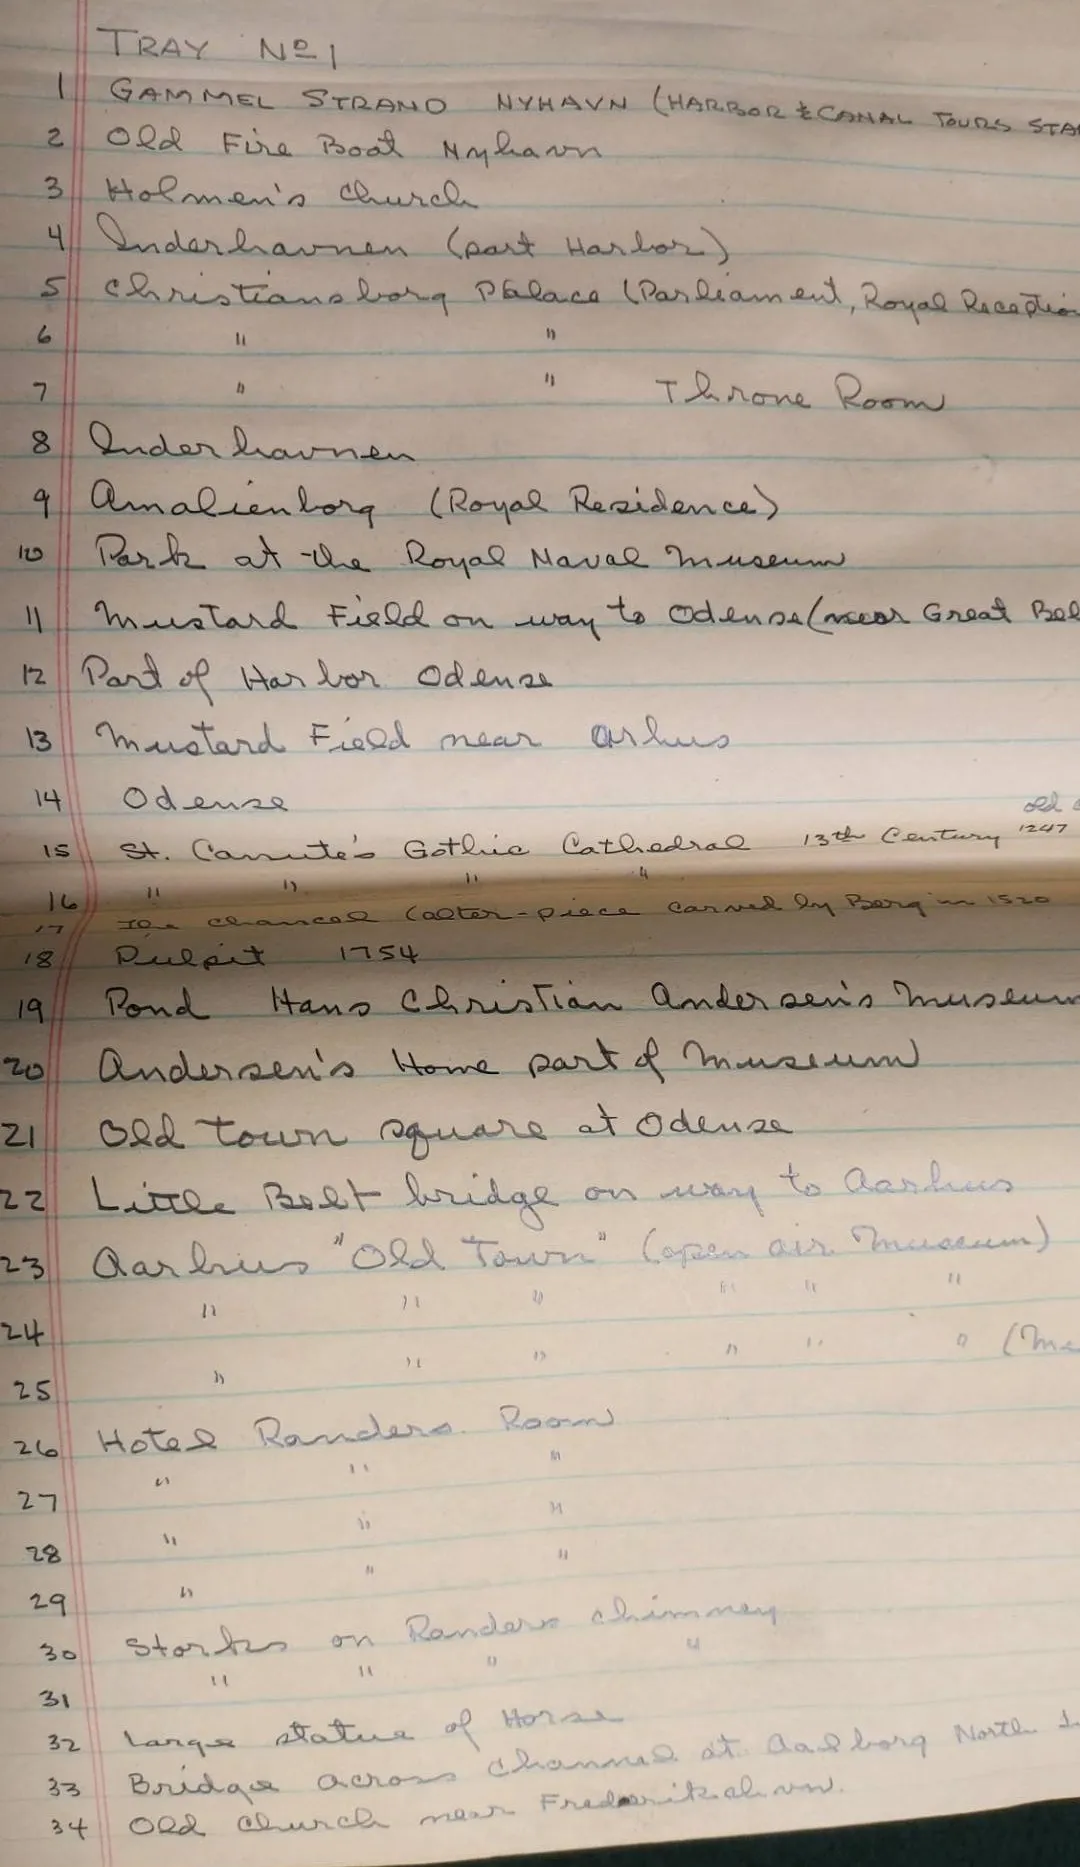 TRAY Nº 1
1 GAMMEL STRAND NYHAVN (HARBOR & CANAL TOURS STA
2 Old Fire Boat Nyhavn
3 Holmen's Church
4 Inderhavnen (part Harbor)
5 Christiansborg Palace (Parliament, Royal Reception
6 " "
7 " " Throne Room
8 Inderhavnen
9 Amalienborg (Royal Residence)
10 Park at the Royal Naval Museum
11 Mustard Field on way to Odense (near Great Bel
12 Part of Harbor Odense
13 Mustard Field near Arhus
14 Odense
old
15 St. Canute's Gothic Cathedral 13th Century 1247
16 " " " "
17 The chancel (alter-piece carved by Berg in 1520
18 Pulpit 1754
19 Pond Hans Christian Andersen's Museum
20 Andersen's Home part of Museum
21 Old town square at Odense
22 Little Belt bridge on way to Aarhus
23 Aarhus "Old Town" (open air Museum)
24 " " " " " "
25 " " " " " " (Me
26 Hotel Randers Room
27 " " "
28 " " "
29 " " "
30 Storks on Randers chimney
31 " " " "
32 Large statue of Horse
33 Bridge across Channel at Aalborg North
34 Old Church near Frederikshavn.